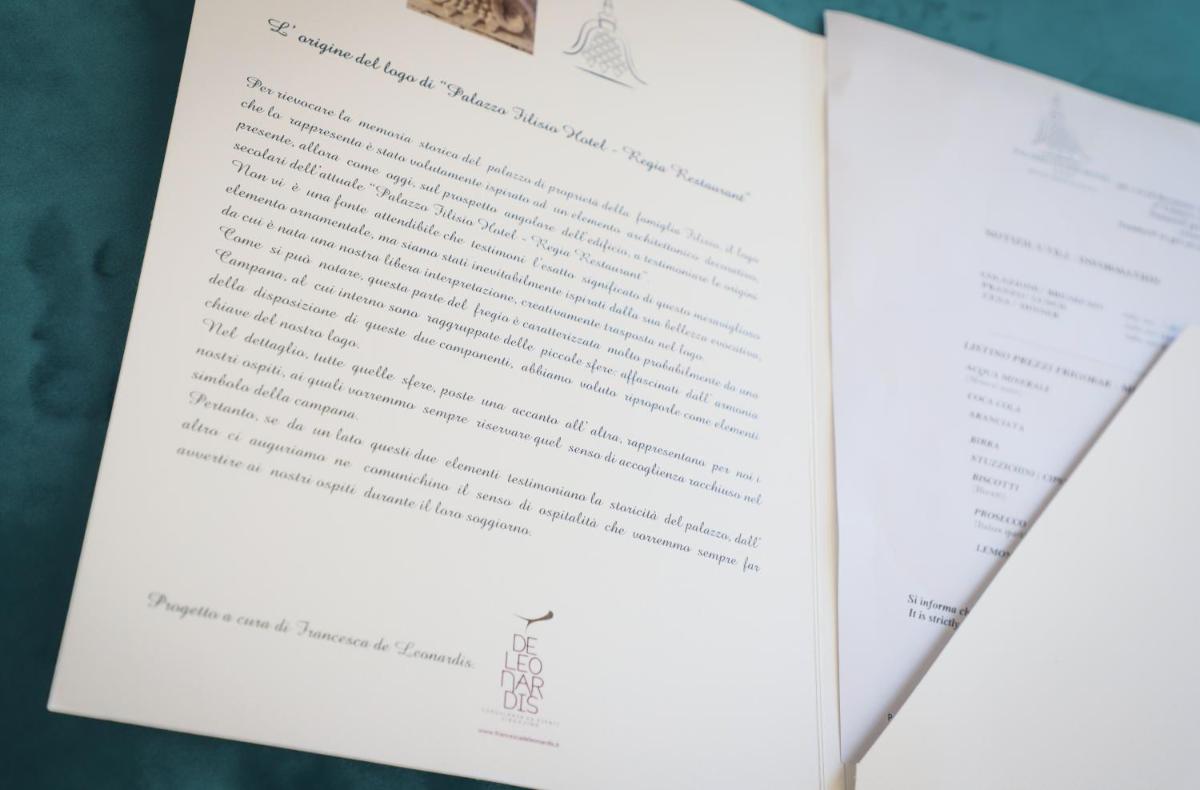 L' origine del logo di "Palazzo Filisio Hotel - Regia Restaurant"
Per rievocare la memoria storica del palazzo di proprietà della famiglia Filisio, il logo
che lo rappresenta è stato volutamente ispirato ad un elemento architettonico decorativo,
presente, allora come oggi, sul prospetto angolare dell'edificio, a testimoniare le origini
secolari dell'attuale "Palazzo Filisio Hotel - Regia Restaurant".
Non vi è una fonte attendibile che testimoni l'esatto significato di questo meraviglioso
elemento ornamentale, ma siamo stati inevitabilmente ispirati dalla sua bellezza evocativa,
da cui è nata una nostra libera interpretazione, creativamente trasposta nel logo.
Come si può notare, questa parte del fregio è caratterizzata molto probabilmente da una
Campana, al cui interno sono raggruppate delle piccole sfere: affascinati dall' armonia
della disposizione di queste due componenti, abbiamo voluto riproporle come elementi
chiave del nostro logo.
Nel dettaglio, tutte quelle sfere, poste una accanto all' altra, rappresentano per noi i
nostri ospiti, ai quali vorremmo sempre riservare quel senso di accoglienza racchiuso nel
simbolo della campana.
Pertanto, se da un lato questi due elementi testimoniano la storicità del palazzo, dall'
altro ci auguriamo ne comunichino il senso di ospitalità che vorremmo sempre far
avvertire ai nostri ospiti durante il loro soggiorno.
Progetto a cura di Francesca de Leonardis.
DE
LEO
NAR
DIS
www.francescadeleonardis.it
NOTIZIE UTILI / INFORMATION
COLAZIONE / BREAKFAST
PRANZO / LUNCH
CENA / DINNER
LISTINO PREZZI FRIGOBAR - M
ACQUA MINERALE
COCA COLA
ARANCIATA
BIRRA
STUZZICHINI / CIPS
BISCOTTI
PROSECCO
LEMO
Si informa ch
It is strictly